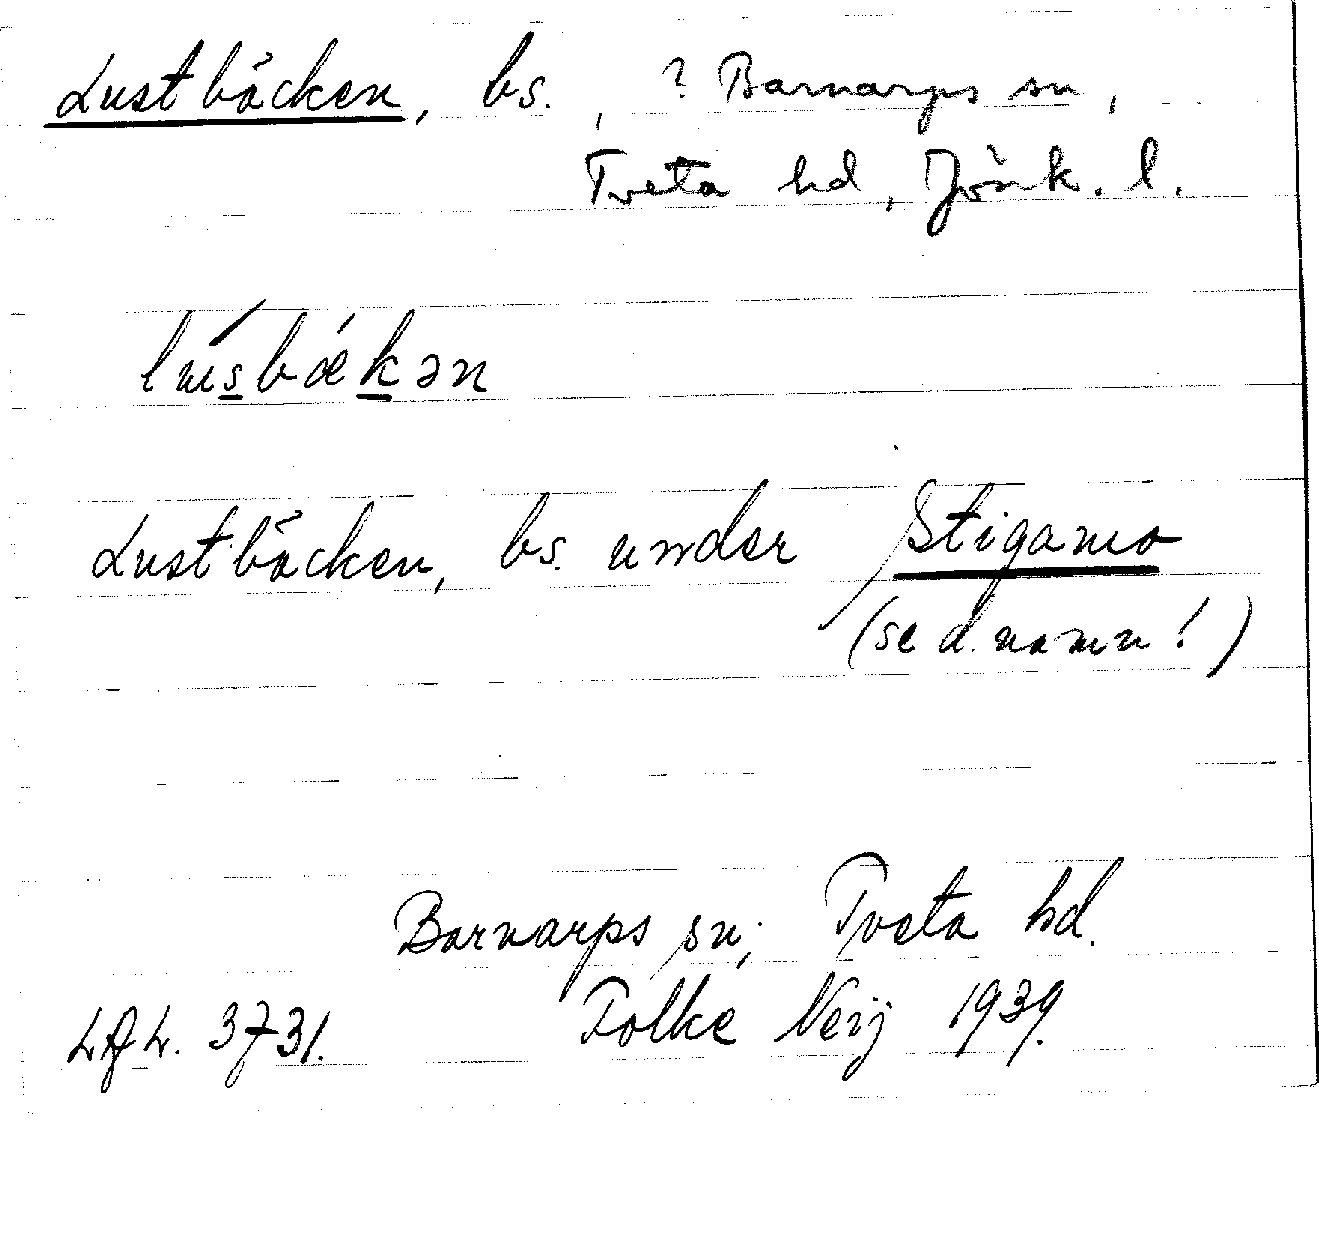 Lustbäcken, bs., ? Barnarps sn,
Tveta hd, Jönk. l.
lusbækən
Lustbäcken, bs. under Stigamo
(se d. namn!)
Barnarps sn; Tveta hd.
Folke Neij 1939.
3731.